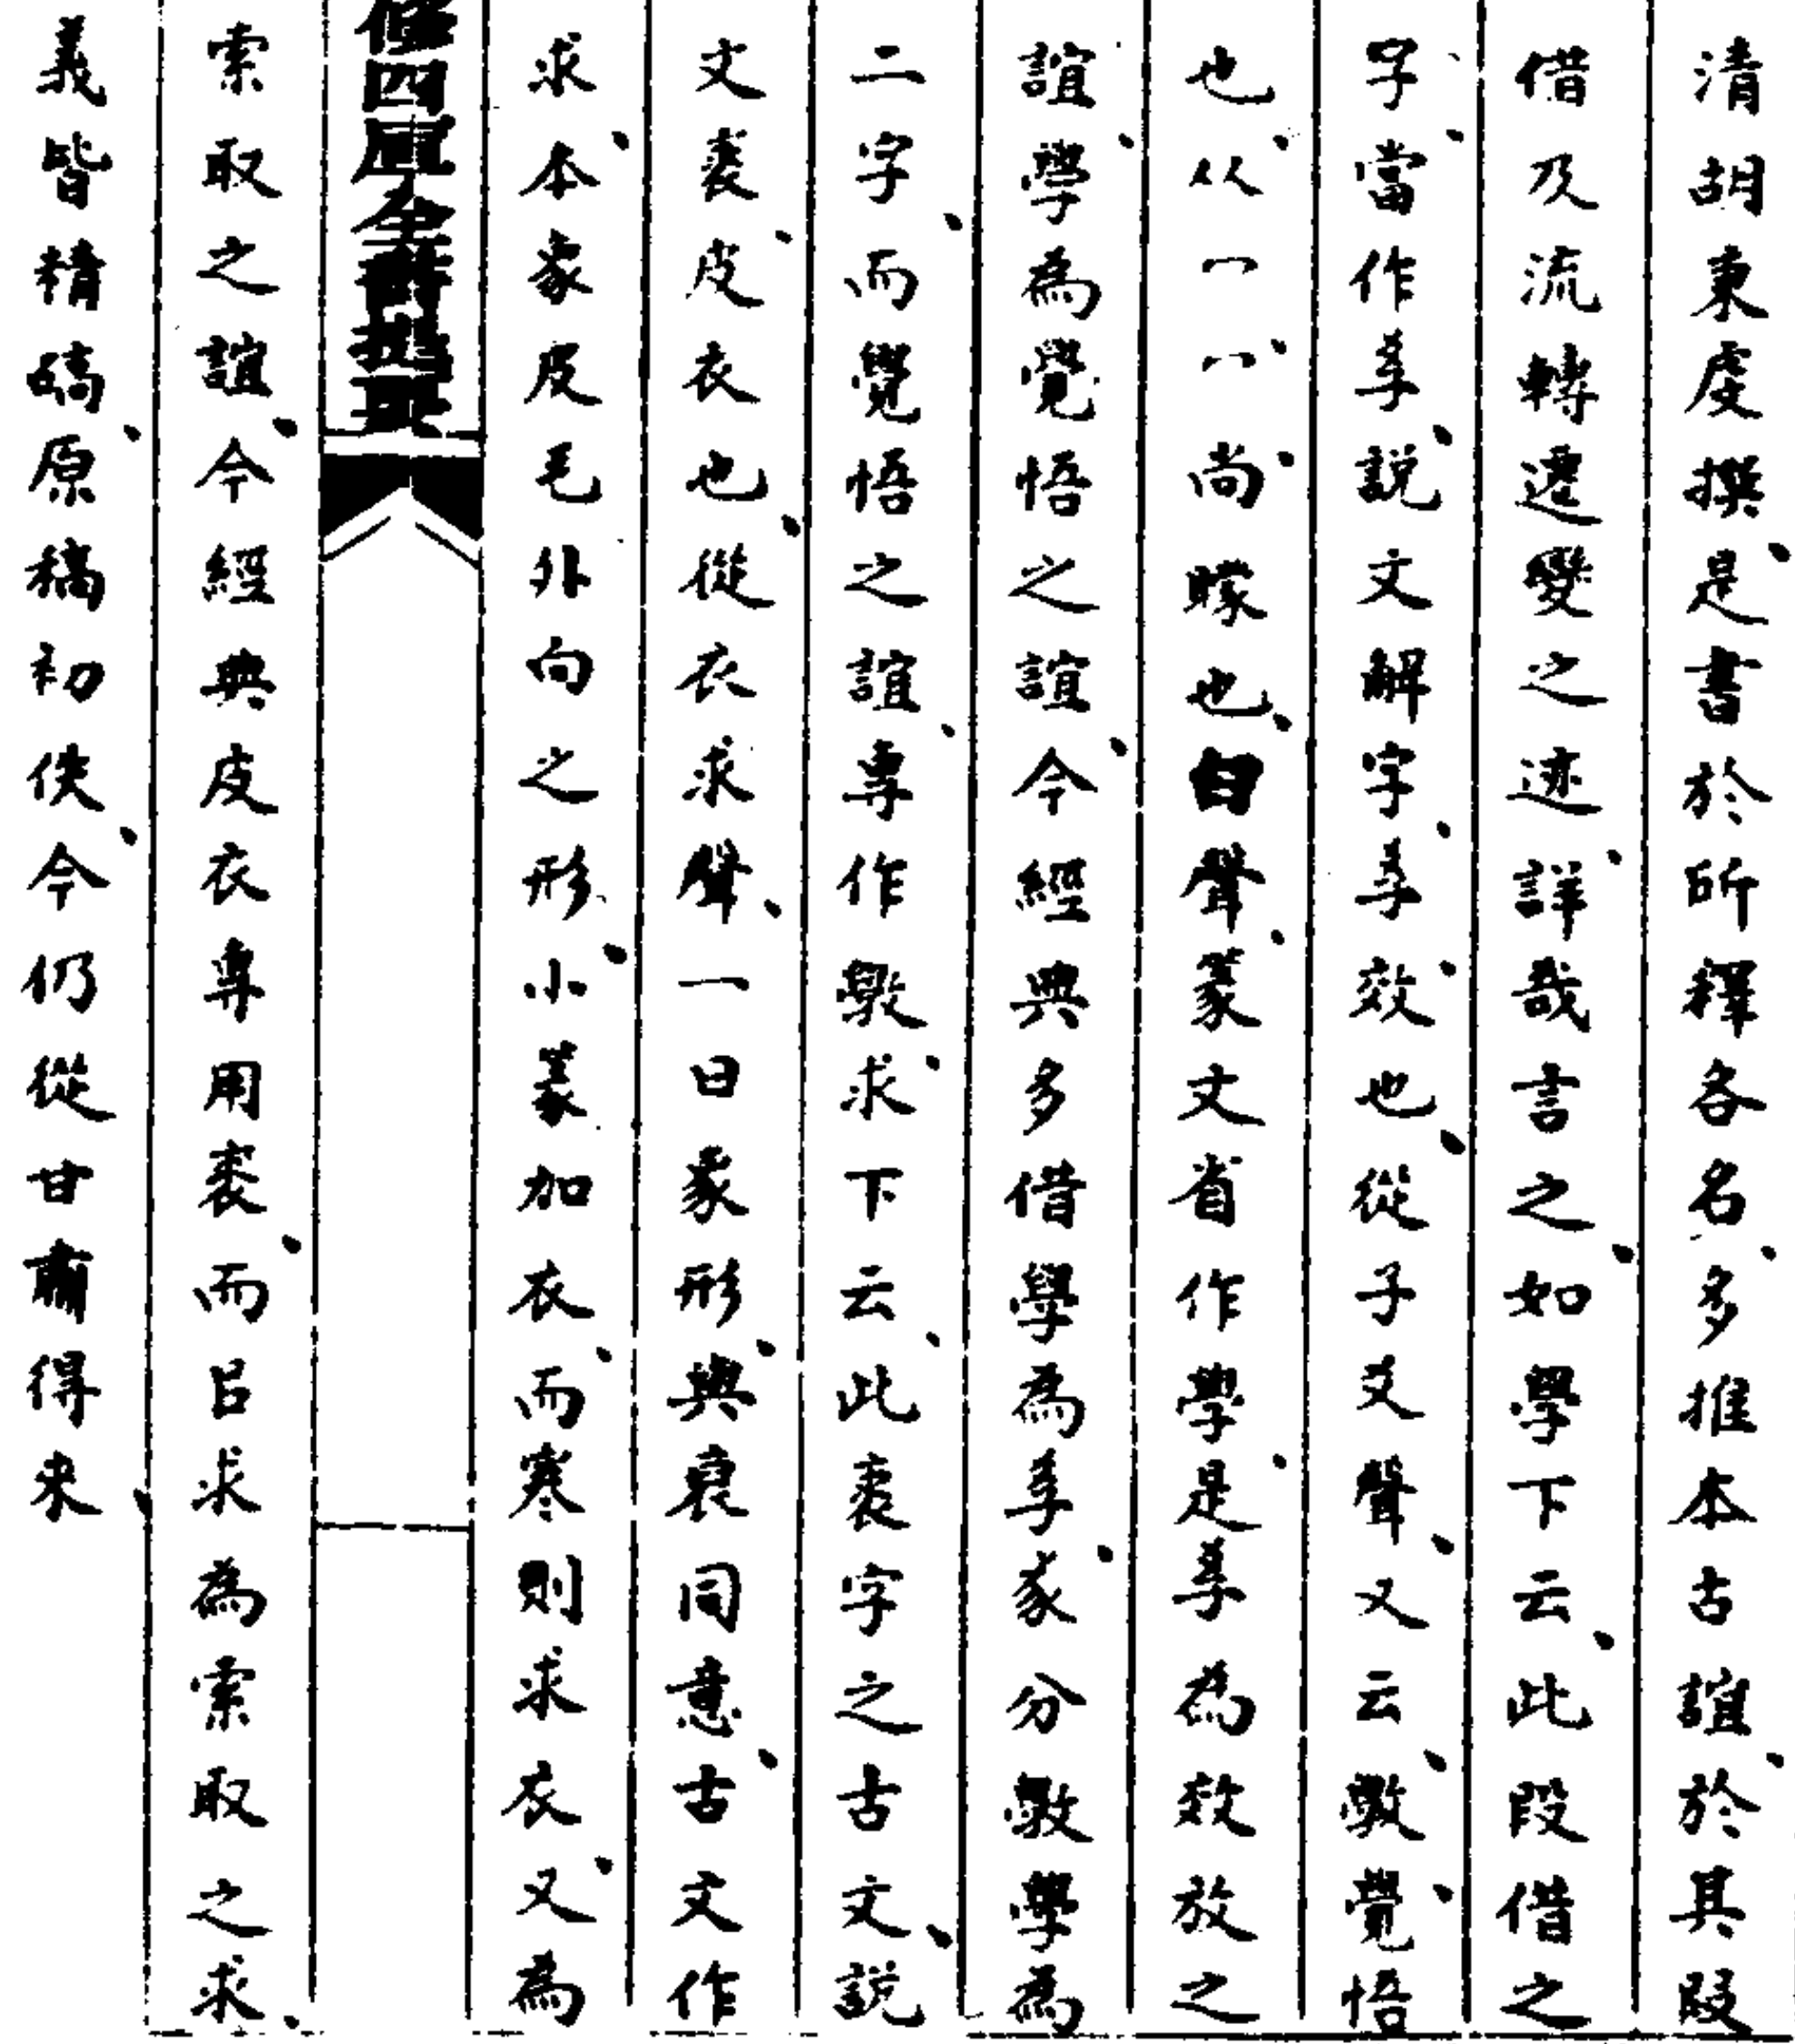 清胡秉虔撰、是書於所釋各名、多推本古誼、於其叚
借及流轉遷變之迹、詳哉言之、如學下云、此叚借之
字、當作𡥉、説文解字、𡥉、效也、從子爻聲、又云、斆、覺悟
也、从
冖、尚矇也、臼聲、篆文省作學、是𡥉為效放之
誼、學為覺悟之誼、今經典多借學為𡥉、㒸分斆學為
二字、而覺悟之誼、專作斆、求下云、此裘字之古文、説
文裘、皮衣也、從衣求聲、一曰象形、與衰同意、古文作
求、本象皮毛外向之形、小篆加衣、而寒則求衣、又為
修四庫全書提要
索取之誼、今經典皮衣專用裘、而㠯求為索取之求、
義皆精碻、原稿初佚、今仍從甘肅得來、